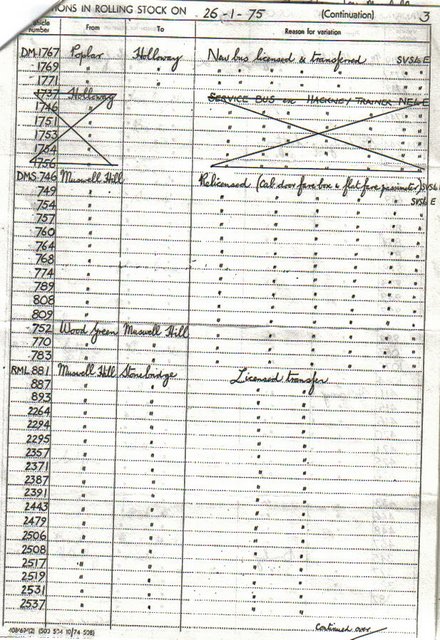 IONS IN ROLLING STOCK ON 26-1-75 (Continuation) 3
number From To Reason for variation
DM.1767 Poplar Holloway New bus licensed & transferred SVSLE
1769 " " " " " " "
1771 " " " " " " "
1737 Holloway SERVICE BUS ex HACKNEY TRAINER NEL E
1746 "
1751 "
1753 "
1754 "
1756 "
DMS.746 Muswell Hill Relicensed (Cab door fare box & flat fare passimeter) SVSLE
749 " " " " " "
754 " " " " " " SVSLE
757 " " " " " "
760 " " " " " "
764 " " " " " "
768 " " " " " "
774 " " " " " "
789 " " " " " "
808 " " " " " "
809 " " " " " "
752 Wood Green Muswell Hill " " " " "
770 " " " " " " "
783 " " " " " " "
RML.881 Muswell Hill Stonebridge Licensed transfer
887 " " " "
893 " " " "
2264 " " " "
2294 " " " "
2295 " " " "
2357 " " " "
2371 " " " "
2387 " " " "
2391 " " " "
2443 " " " "
2479 " " " "
2506 " " " "
2508 " " " "
2517 " " " "
2519 " " " "
2531 " " " "
2537 " " " "
Continued over